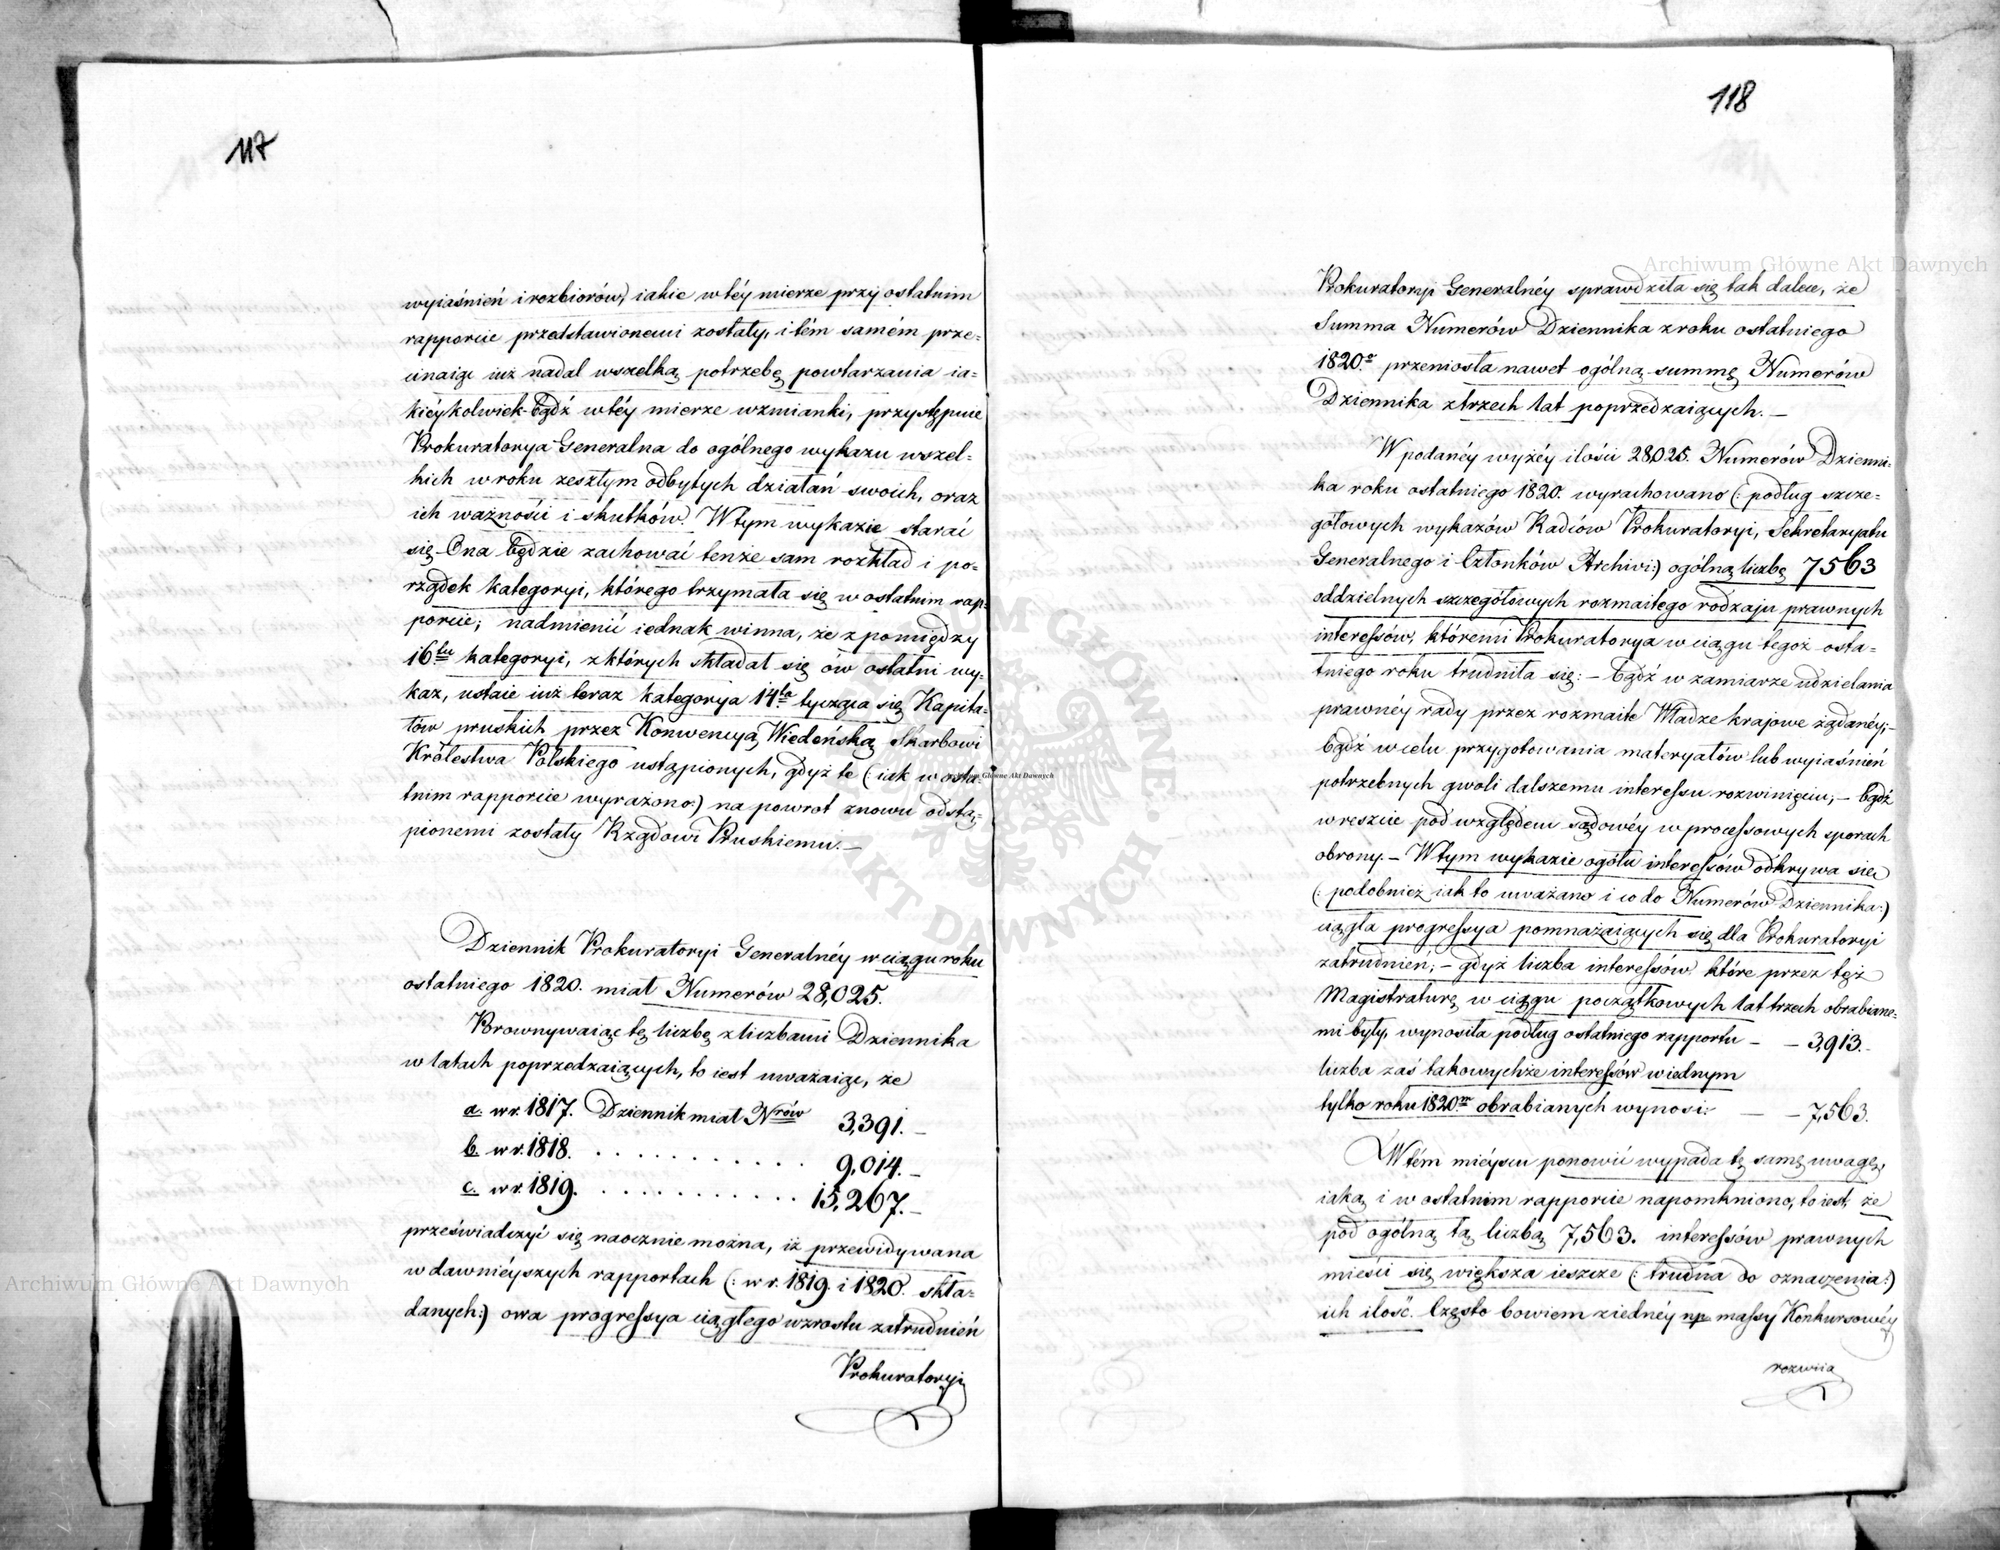 117
wyiaśnień i rozbiorów, iakie w téy mierze przy ostatnim
rapporcie przedstawionemi zostały, i tém samém prze-
cinaiąc iuż nadal wszelką potrzebę powtarzania ia-
kiéykolwiek-bądź w téy mierze wzmianki, przystępuie
Prokuratorya Generalna do ogólnego wykazu wszel-
kich w roku zeszłym odbytych działań swoich, oraz
ich ważności i skutków. W tym wykazie starać
się Ona będzie zachować tenże sam rozkład i po-
rządek kategoryi, którego trzymała się w ostatnim rap-
porcie; nadmienić iednak winna, że z pomiędzy
16tu kategoryi, z których składał się ów ostatni wy-
kaz, ustaie iuż teraz kategorya 14ta tycząca się Kapita-
łów pruskich przez Konwencyą Wiedeńską Skarbowi
Królestwa Polskiego ustąpionych, gdyż te (: iak w osta-
tnim rapporcie wyrażono:) na powrot znowu odstą-
pionemi zostały Rządowi Pruskiemu. —
Dziennik Prokuratoryi Generalnéy w ciągu roku
ostatniego 1820. miał Numerów 28,025.
Prownywaiąc tę liczbę z liczbami Dziennika
w latach poprzedzaiących, to iest uważaiąc, że
a. w r. 1817. Dziennik miał Nrów 3,391. —
b. w r. 1818. . . . . . . . . . . . 9,014. —
c. w r. 1819. . . . . . . . . . . . 15,267. —
przeświadczyć się naocznie można, iż przewidywana
w dawniéyszych rapportach (: w r. 1819. i 1820. skła-
danych:) owa progressya ciągłego wzrostu zatrudnień
Prokuratoryi
118
Prokuratoryi Generalnéy sprawdziła się tak dalece, że
Summa Numerów Dziennika z roku ostatniego
1820.o przeniosła nawet ogólną summę Numerów
Dziennika z trzech lat poprzedzaiących. —
W podanéy wyżéy ilości 28,025. Numerów Dzienni-
ka roku ostatniego 1820. wyrachowano (: podług szcze-
gółowych wykazów Radców Prokuratoryi, Sekretaryatu
Generalnego i Członków Archivi:) ogólną liczbę 7563
oddzielnych szczegółowych rozmaitego rodzaju prawnych
interessów, któremi Prokuratorya w ciągu tegoż osta-
tniego roku trudniła się: — bądź w zamiarze udzielania
prawnéy rady przez rozmaite Władze krajowe żądanéy; —
bądź w celu przygotowania materyałów lub wyiaśnień
potrzebnych gwoli dalszemu interessu rozwinięciu; — bądź
wreszcie pod względem sądowéy w processowych sporach
obrony. — W tym wykazie ogółu interessów odkrywa się
(: podobnież iak to uważano i co do Numerów Dziennika:)
ciągła progressya pomnażaiących się dla Prokuratoryi
zatrudnień; — gdyż liczba interessów które przez tęż
Magistraturę w ciągu początkowych lat trzech obrabiane-
mi były, wynosiła podług ostatniego rapportu — — 3,913. —
liczba zaś takowychże interessów w iednym
tylko roku 1820.m obrabianych wynosi: — — 7,563.
W tém mieyscu ponowić wypada tę samę uwagę,
iaką i w ostatnim rapporcie napomkniono, to iest, że
pod ogólną tą liczbą 7,563. interessów prawnych
mieści się większa ieszcze (: trudna do oznaczenia:)
ich ilość. Często bowiem z iednéy np. massy Konkursowéy
rozwiia